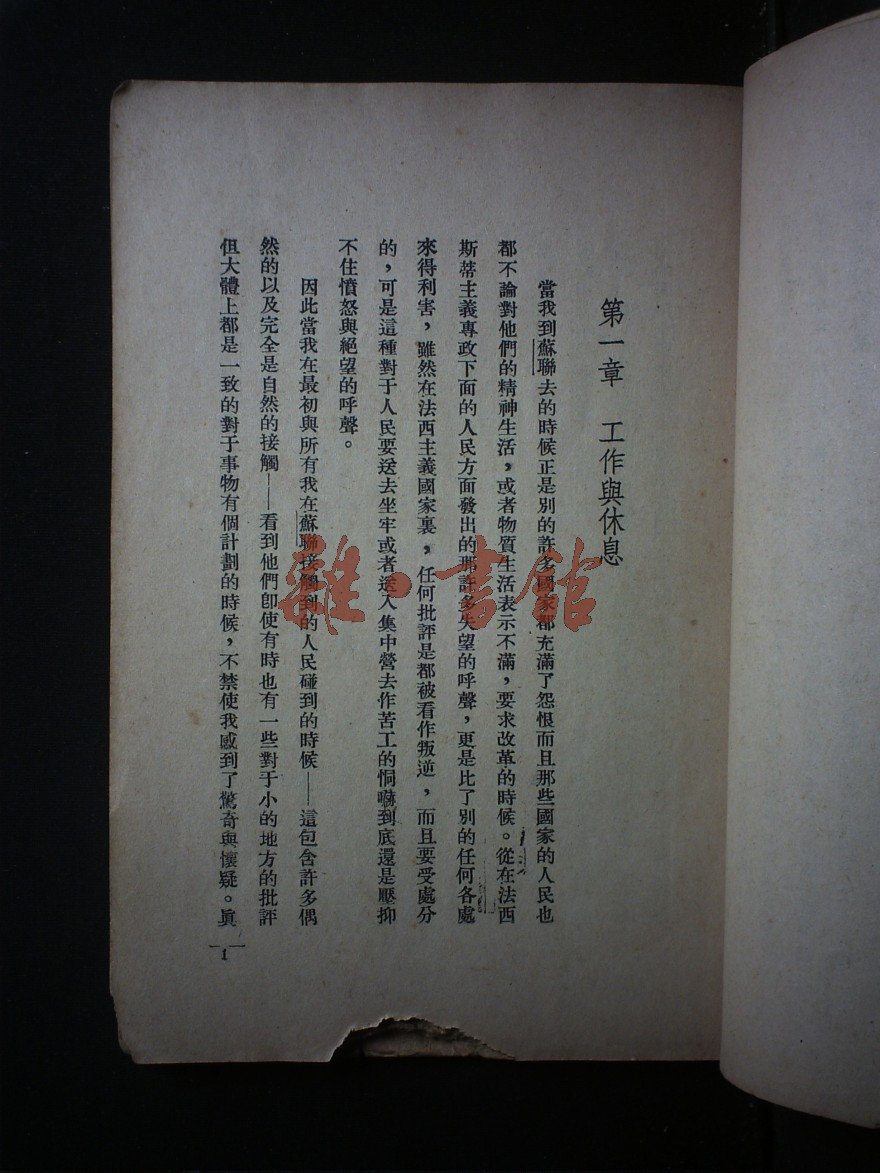 第一章　工作與休息
當我到蘇聯去的時候正是別的許多國家都充滿了怨恨而且那些國家的人民也
都不論對他們的精神生活，或者物質生活表示不滿，要求改革的時候。從在法西
斯蒂主義專政下面的人民方面發出的那許多失望的呼聲，更是比了別的任何各處
來得利害，雖然在法西主義國家裏，任何批評是都被看作叛逆，而且要受處分
的，可是這種對于人民要送去坐牢或者送入集中營去作苦工的恫嚇到底還是壓抑
不住憤怒與絕望的呼聲。
因此當我在最初與所有我在蘇聯接觸到的人民碰到的時候——這包含許多偶
然的以及完全是自然的接觸——看到他們卽使有時也有一些對于小的地方的批評
但大體上都是一致的對于事物有個計劃的時候，不禁使我感到了驚奇與懷疑。眞
1
雜·書館